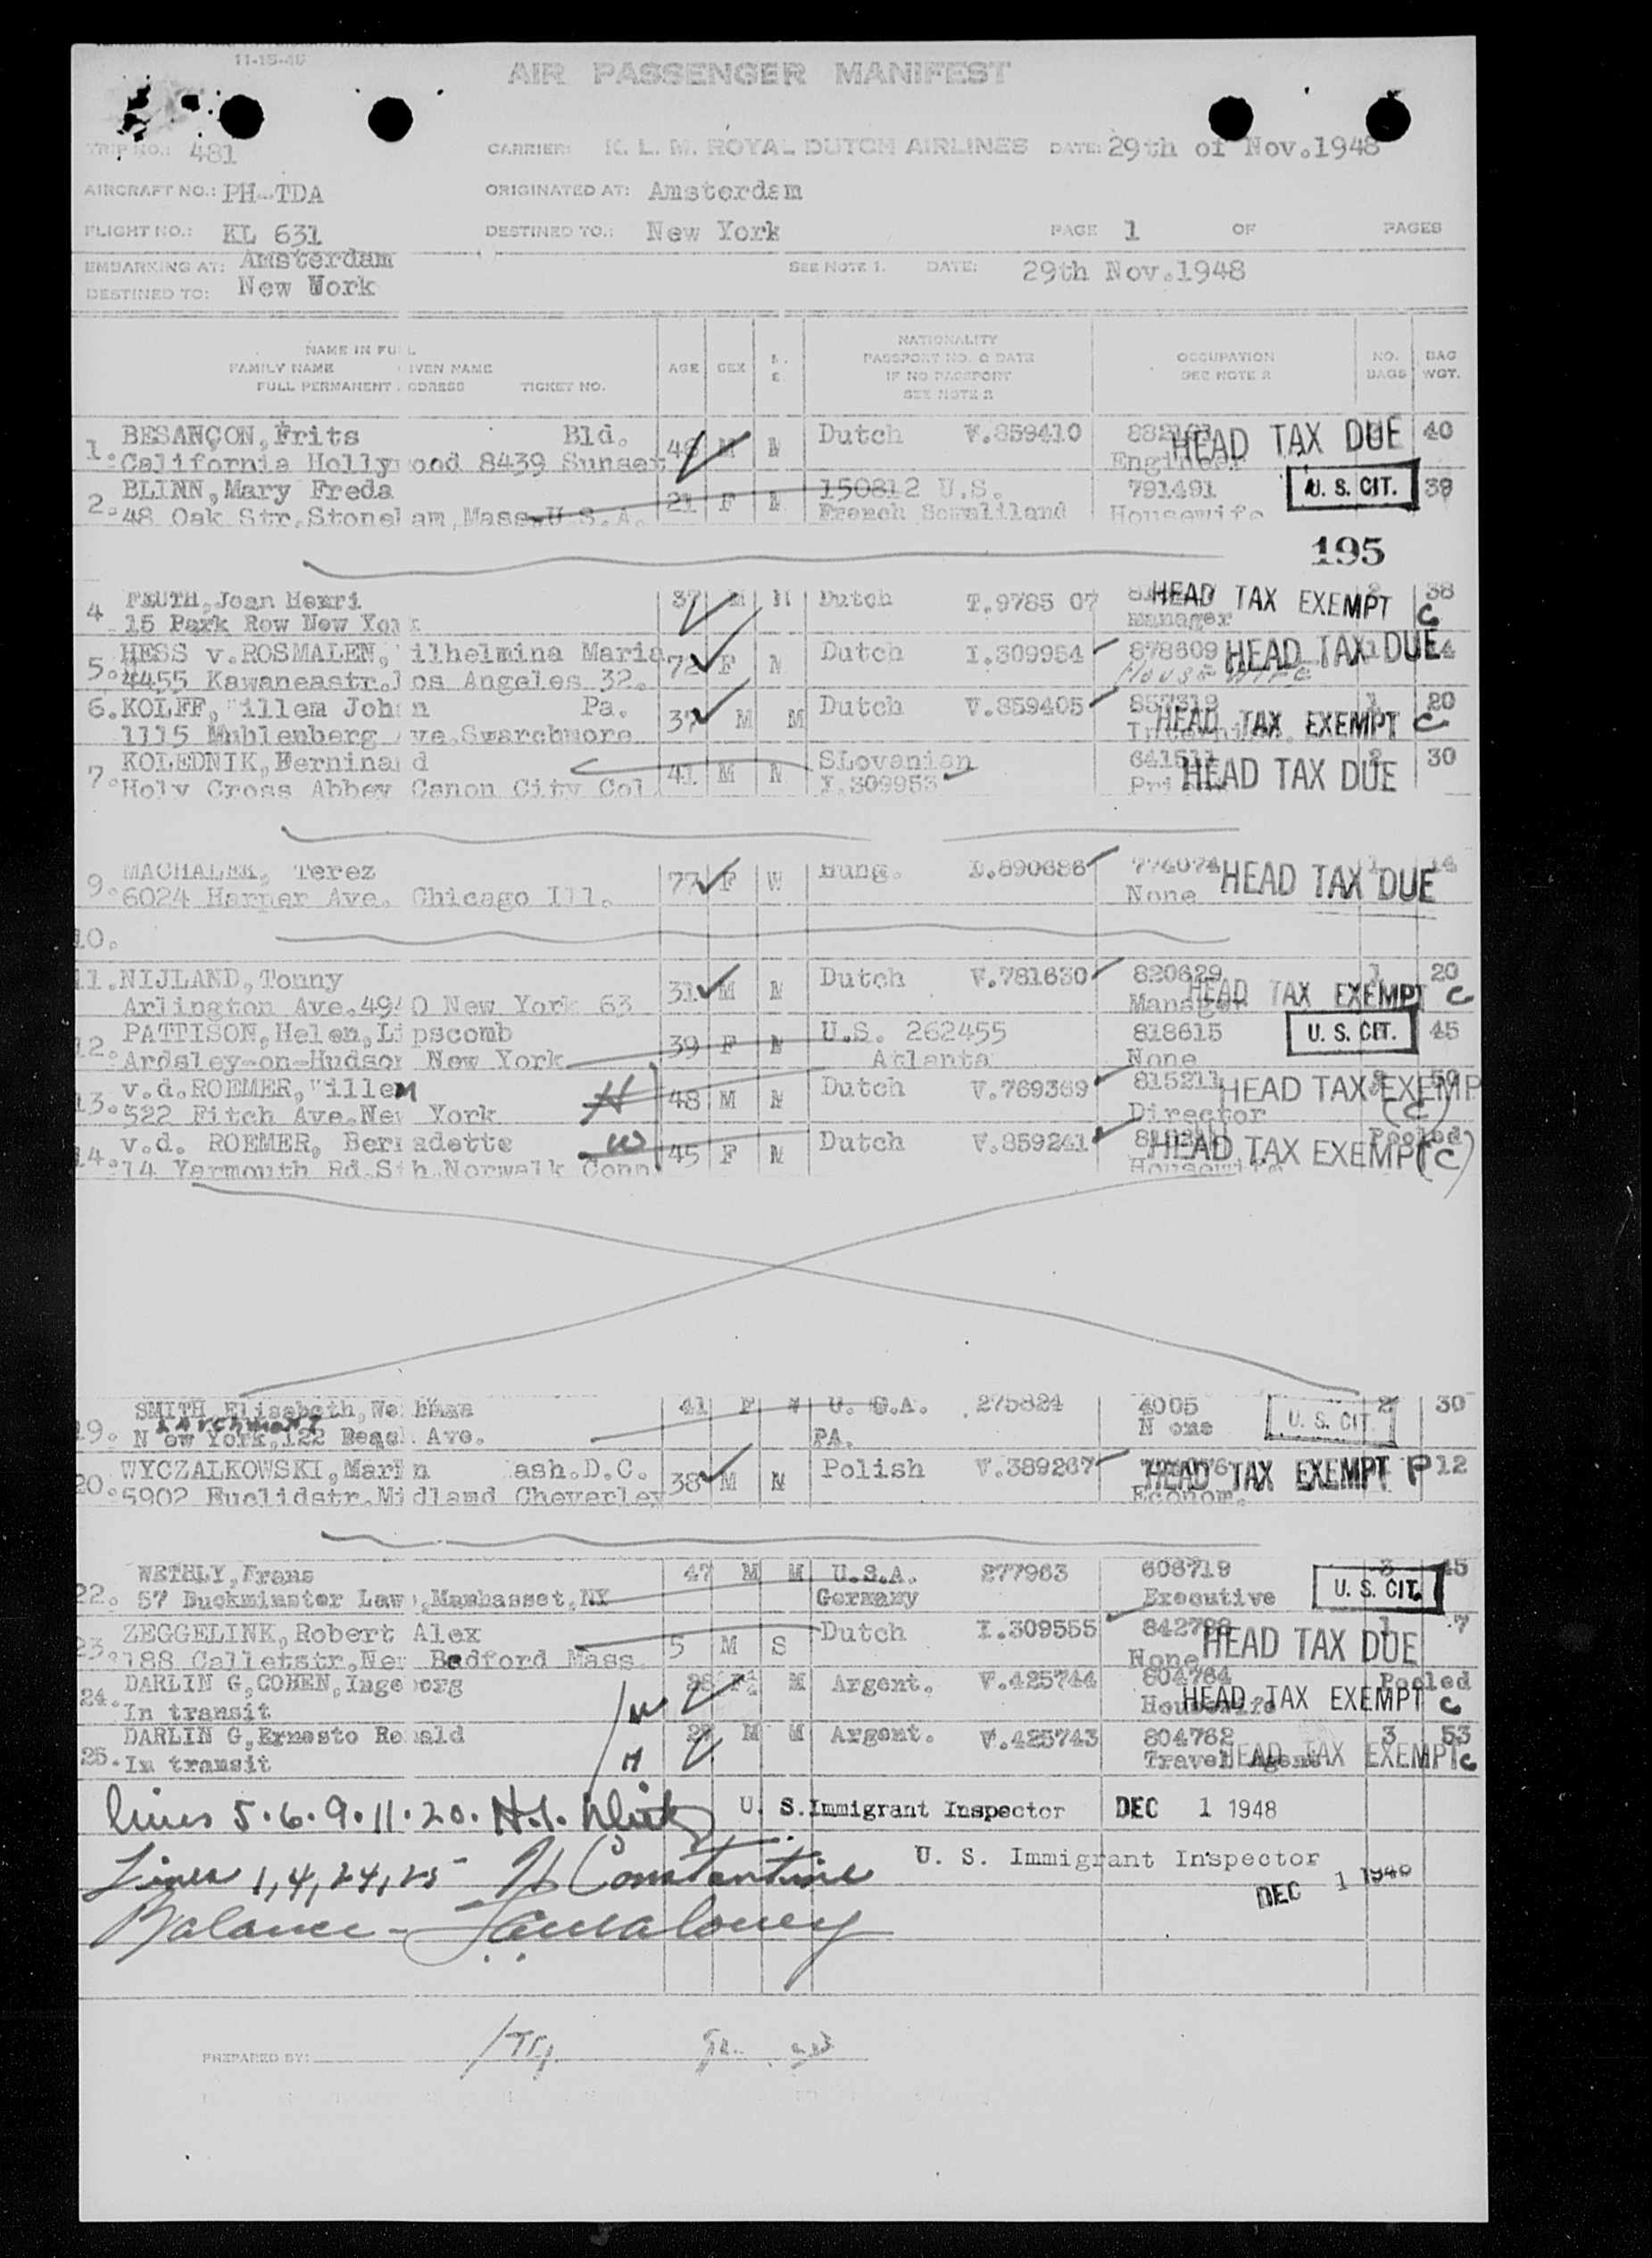 11-15-46
AIR PASSENGER MANIFEST
TRIP NO.: 481 CARRIER: K. L. M. ROYAL DUTCH AIRLINES DATE: 29th of Nov.1948
AIRCRAFT NO.: PH-TDA ORIGINATED AT: Amsterdam
FLIGHT NO.: KL 631 DESTINED TO.: New York PAGE 1 OF PAGES
EMBARKING AT: Amsterdam SEE NOTE 1. DATE: 29th Nov.1948
DESTINED TO: New Work
NAME IN FULL
FAMILY NAME IVEN NAME
FULL PERMANENT ADDRESS TICKET NO.
AGE SEX
NATIONALITY
PASSPORT NO. & DATE
IF NO PASSPORT
SEE NOTE 2
OCCUPATION
SEE NOTE 2
NO. BAGS
BAG WGT.
1. BESANÇON, Frits Bld. 48 M M Dutch V.859410 HEAD TAX DUE 40
California Hollywood 8439 Sunset Engineer
2. BLINN, Mary Freda 21 F M 150812 U.S. 791491 U. S. CIT. 38
48 Oak Str. Stoneham, Mass. U.S.A. French Somaliland Housewife
195
4 FEUTH, Jean Henri 37 M M Dutch T.9785 07 HEAD TAX EXEMPT C 2 38
15 Park Row New York manager
5. HESS v.ROSMALEN, ilhelmina Maria 72 F M Dutch I.309954 878609 HEAD TAX DUE
4455 Kawaneastr. Los Angeles 32. HOUSEWIFE
6. KOLFF, Willem John Pa. 37 M M Dutch V.859405 857319 1 20
1115 Muhlenberg Ave. Swarchmore HEAD TAX EXEMPT C
7. KOLEDNIK, Ferninand 41 M N SLovanian 641511 2 30
Holy Cross Abbey Canon City Col. I.309953 HEAD TAX DUE
9. MACHALEK, Terez 77 F W Hung. I.890686 774074 HEAD TAX DUE 1 14
6024 Harper Ave. Chicago Ill. None
10.
11. NIJLAND, Tonny 31 M M Dutch V.781630 820629 1 20
Arlington Ave. 4940 New York 63 Manager HEAD TAX EXEMPT C
12. PATTISON, Helen, Lipscomb 39 F M U.S. 262455 818615 U. S. CIT. 45
Ardsley-on-Hudson New York Atlanta None
13. v.d.ROEMER, Willem H 48 M M Dutch V.769369 815211 HEAD TAX EXEMP
522 Fitch Ave. New York Director (C)
14. v.d. ROEMER, Bernadette W 45 F M Dutch V.859241 Pooled
14 Yarmouth Rd. Sth. Norwalk Conn Housewife HEAD TAX EXEMPT (C)
19. SMITH, Elisabeth, 41 F U. S.A. 275824 4005 U. S. CIT. 2 30
Larchmont
N ew York, 122 Beach Ave. PA. N one
20. WYCZALKOWSKI, Marcin ash.D.C. 38 M M Polish V.389267 HEAD TAX EXEMPT P 12
5902 Euclidstr. Midland Cheverley Econom.
22. WETHLY, Frans 47 M M U.S.A. 277963 606719 3 45
57 Buckminster Law, Manhasset, NY Germany Executive U. S. CIT.
23. ZEGGELINK, Robert Alex 5 M S Dutch I.309555 842798 HEAD TAX DUE 1 7
188 Calletstr. New Bedford Mass. None
24. DARLIN G, COHEN, Ingeborg W F M Argent. V.425744 804764 Pooled
In transit Housewife HEAD TAX EXEMPT C
25. DARLIN G, Ernesto Ronald H M M Argent. V.425743 804762 3 53
In transit Travel Agent HEAD TAX EXEMPT C
lines 5.6.9.11.20. U. S. Immigrant Inspector DEC 1 1948
Lines 1,4,24,25 H Constantine U. S. Immigrant Inspector
DEC 1 1948
Balance -
PREPARED BY: